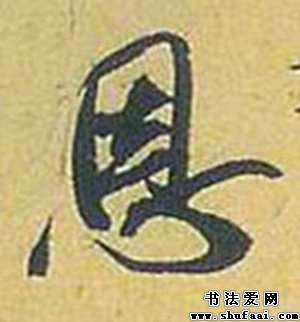 恩
书法爱网
www.shufaai.com